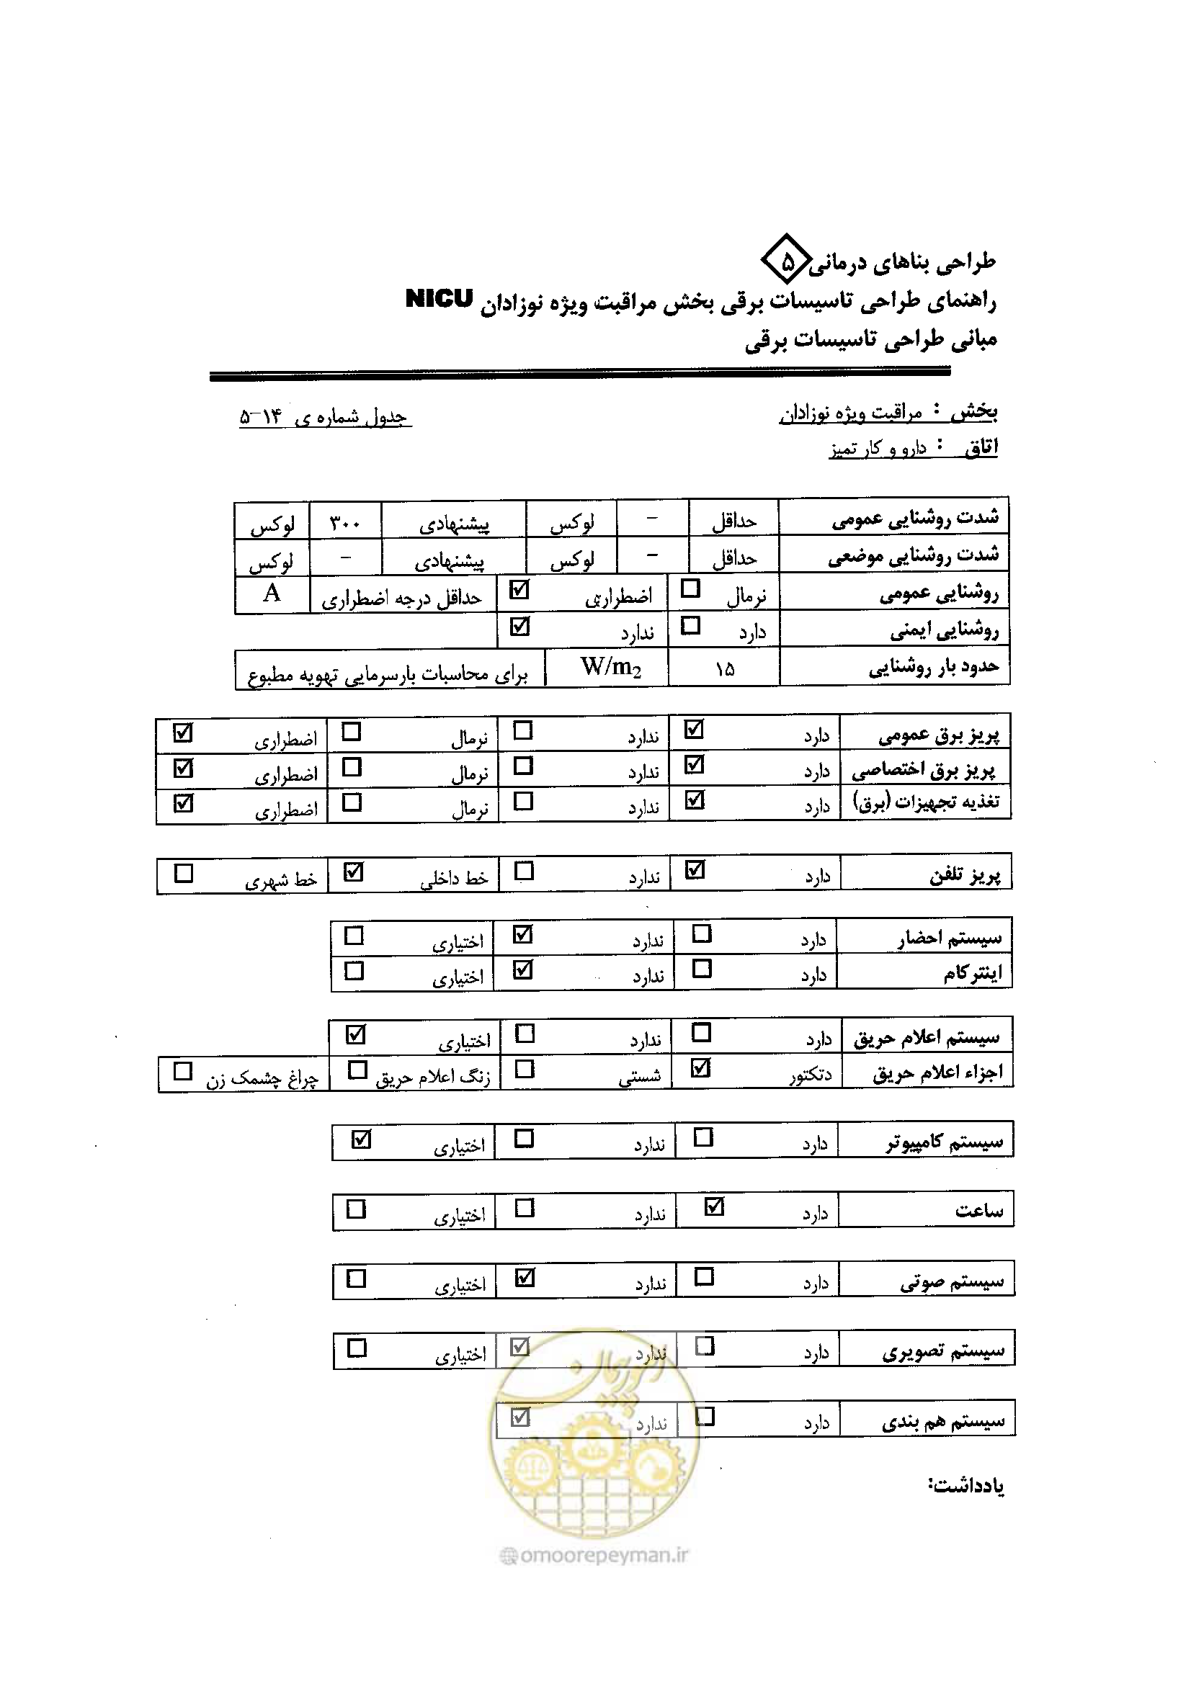 طراحی بناهای درمانی ۵
راهنمای طراحی تاسیسات برقی بخش مراقبت ویژه نوزادان NICU
مبانی طراحی تاسیسات برقی
بخش : مراقبت ویژه نوزادان جدول شماره ی ۱۴-۵
اتاق : دارو و کار تمیز
شدت روشنایی عمومی حداقل – لوکس پیشنهادی ۳۰۰ لوکس
شدت روشنایی موضعی حداقل – لوکس پیشنهادی – لوکس
روشنایی عمومی نرمال ☐ اضطراری ☑ حداقل درجه اضطراری A
روشنایی ایمنی دارد ☐ ندارد ☑
حدود بار روشنایی ۱۵ W/m2 برای محاسبات بارسرمایی تهویه مطبوع
پریز برق عمومی دارد ☑ ندارد ☐ نرمال ☐ اضطراری ☑
پریز برق اختصاصی دارد ☑ ندارد ☐ نرمال ☐ اضطراری ☑
تغذیه تجهیزات (برق) دارد ☑ ندارد ☐ نرمال ☐ اضطراری ☑
پریز تلفن دارد ☑ ندارد ☐ خط داخلی ☑ خط شهری ☐
سیستم احضار دارد ☐ ندارد ☑ اختیاری ☐
اینترکام دارد ☐ ندارد ☑ اختیاری ☐
سیستم اعلام حریق دارد ☐ ندارد ☐ اختیاری ☑
اجزاء اعلام حریق دتکتور ☑ شستی ☐ زنگ اعلام حریق ☐ چراغ چشمک زن ☐
سیستم کامپیوتر دارد ☐ ندارد ☐ اختیاری ☑
ساعت دارد ☑ ندارد ☐ اختیاری ☐
سیستم صوتی دارد ☐ ندارد ☑ اختیاری ☐
سیستم تصویری دارد ☐ ندارد ☑ اختیاری ☐
سیستم هم بندی دارد ☐ ندارد ☑
یادداشت:
امور پیمان
@omoorepeyman.ir